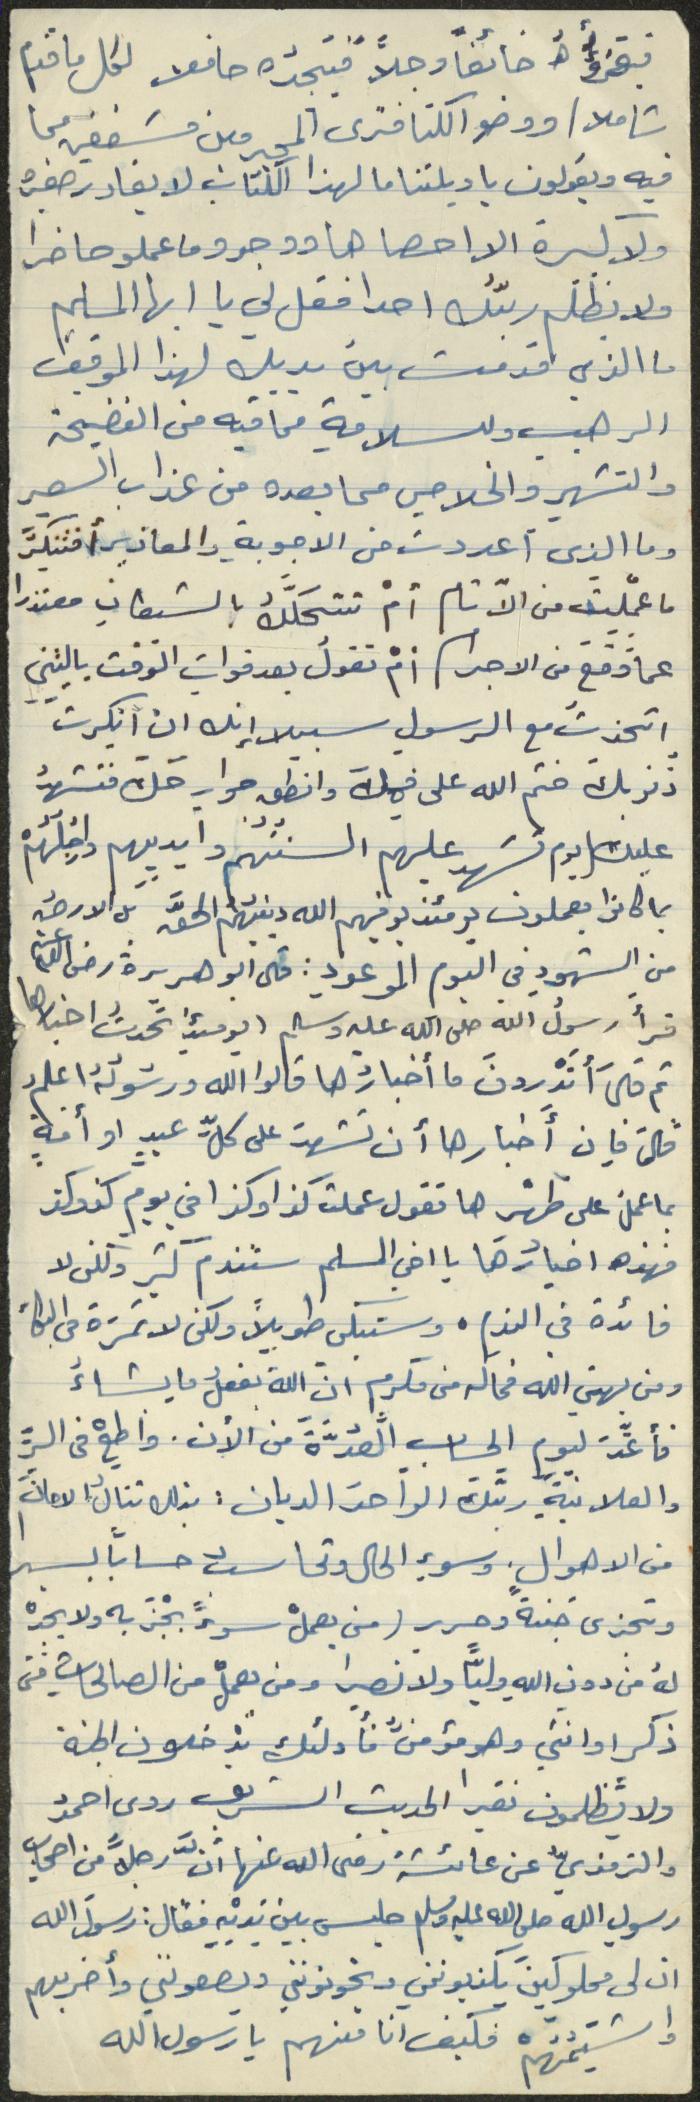 فتقرؤه خائفاً وجلاً فتجده حافظ لكل ما قدم
شاملا/ ووضع الكتا فترى المجرمين مشفقين مما
فيه ويقولون ياويلتنا ما لهذا الكتاب لا يغادر صغيرة
ولا كبيرة الا احصاها ووجدو ما عملو حاضرا
ولا يظلم ربك احدا فقل لي يا ايها المسلم
ما الذي قدمت بين يديك لهذا الموقف
الرهيب وللسلامة مما فيه من الفضيحة
والتشهير والخلاص مما بعده من عذاب السعير
وما الذي أعددت من الاجوبة والمعاذير أفتنكر
ما عملت من الآثام أم تتمحك بالشيطان معتذرا
عما وقع من الاجرام أم تقول بعد فوات الوقت ياليتني
اتخذت مع الرسول سبيلا إنك ان أنكرت
ذنوبك ختم الله على فيك وانطق جوارحك فتشهد
عليك (يوم تشهد عليهم السنتهم وأيديهم وارجلهم
بما كانوا يعملون يومئذ يوفيهم الله دينهم الحق بل الارض
من الشهود في اليوم الموعود: قال ابو هريرة رضي الله عنه
قرأ رسول الله صلى الله عليه وسلم (يومئذ تحدث اخبارها
ثم قال أتدرون ما أخبارها قالوا الله ورسوله اعلم
قال فإن أخبارها أن تشهد على كل عبد او أمة
بما عمل على ظهرها تقول عملت كذا وكذا في يوم كذ وكذ
فهذه اخبارها يا اخي المسلم ستندم كثير ولكن لا
فائدة في الندم. وستبكي طويلاً ولكن لا ثمرة في البكاء
ومن يهن الله فماله من مكرم ان الله يفعل ما يشاء
فأعد ليوم الحساب العدة من الأن. واطع في السر
والعلانية ربك الواحد الديان: بذلك تنال الامان
من الاهوال. وسوء الحال وتحاسب حساباً يسيرا
وتجزى جنة وحرير (من يعمل سوءً يجز به ولا يجد
له من دون الله ولياً ولا نصيرا ومن يعمل من الصالحات من
ذكر او انثى وهو مؤمن فأولئك يدخلون الجنة
ولا يظلمون نقيرا الحديث الشريف روى احمد
والترمذي عن عائشة رضي الله عنها أن رجلاً من اصحاب
رسول الله صلى الله عليه وسلم جلس بين يديه فقال: رسول الله
ان لي مملوكين يكذبونني ويخونونني ويعصونني وأضربهم
واشتمهم فكيف انا منهم يا رسول الله